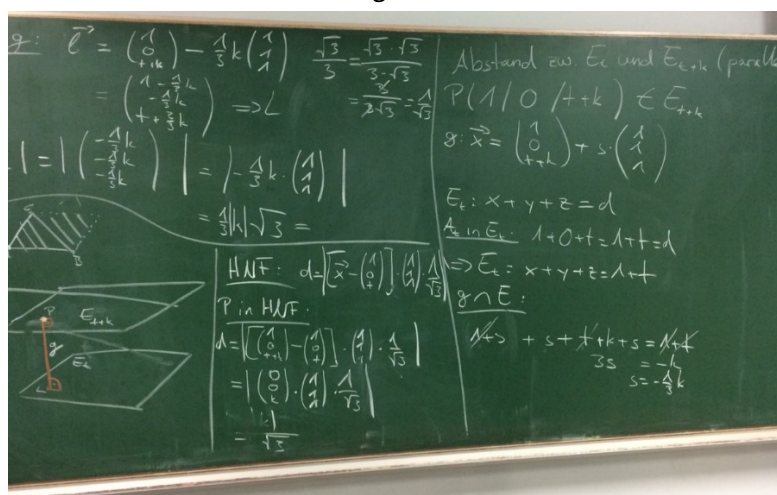 g: \vec{l} = \begin{pmatrix} 1 \\ 0 \\ t+k \end{pmatrix} - \frac{1}{3}k \begin{pmatrix} 1 \\ 1 \\ 1 \end{pmatrix}
= \begin{pmatrix} 1-\frac{1}{3}k \\ -\frac{1}{3}k \\ t+\frac{2}{3}k \end{pmatrix} ⇒ L
| = | \begin{pmatrix} -\frac{1}{3}k \\ -\frac{1}{3}k \\ -\frac{1}{3}k \end{pmatrix} | = | -\frac{1}{3}k · \begin{pmatrix} 1 \\ 1 \\ 1 \end{pmatrix} |
= \frac{1}{3}|k|√3 =
\frac{√3}{3} = \frac{√3 · √3}{3 · √3}
= \frac{3}{3√3} = \frac{1}{√3}
B
P
E_{t+k}
g
E_t
L
HNF: d = |[\vec{x} - \begin{pmatrix} 1 \\ 0 \\ t \end{pmatrix}] · \begin{pmatrix} 1 \\ 1 \\ 1 \end{pmatrix} · \frac{1}{√3}|
P in HNF:
d = |[\begin{pmatrix} 1 \\ 0 \\ t+k \end{pmatrix} - \begin{pmatrix} 1 \\ 0 \\ t \end{pmatrix}] · \begin{pmatrix} 1 \\ 1 \\ 1 \end{pmatrix} · \frac{1}{√3}|
= |\begin{pmatrix} 0 \\ 0 \\ k \end{pmatrix} · \begin{pmatrix} 1 \\ 1 \\ 1 \end{pmatrix} · \frac{1}{√3}|
= \frac{|k|}{√3}
Abstand zw. E_t und E_{t+k} (parallel
P(1/0/t+k) ∈ E_{t+k}
g: \vec{x} = \begin{pmatrix} 1 \\ 0 \\ t+k \end{pmatrix} + s · \begin{pmatrix} 1 \\ 1 \\ 1 \end{pmatrix}
E_t: x+y+z = d
A_t in E_t: 1+0+t = 1+t = d
⇒ E_t: x+y+z = 1+t
g ∩ E:
1+s + s + t+k+s = 1+t
3s = -k
s = -\frac{1}{3}k